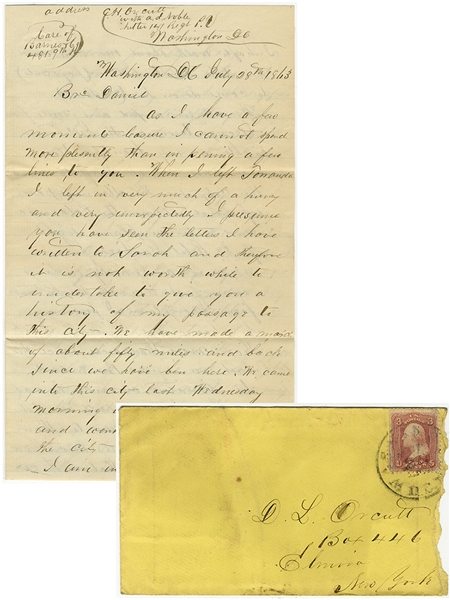 address
E H Orcutt
with A S Noble
Sutler 141 Regt P.V
Washington DC
Care of
Barnes
481 9th
Washington DC July 28th 1863
Bro Daniel
as I have a few
moments leasure I cannot spend
more plesently than in pening a few
lines to you. When I left Tonawanda
I left in very much of a hurry
and very unexpectedly. I presume
you have seen the letters I have
written to Sarah and therefore
it is not worth while to
undertake to give you a
history of my passage to
this city. We have made a march
of about fifty miles and back
since we have ben here. We came
into this city last Wednesday
morning
and
the city
I am in
D. L. Orcutt
Box 446
Elmira
New York
3 3